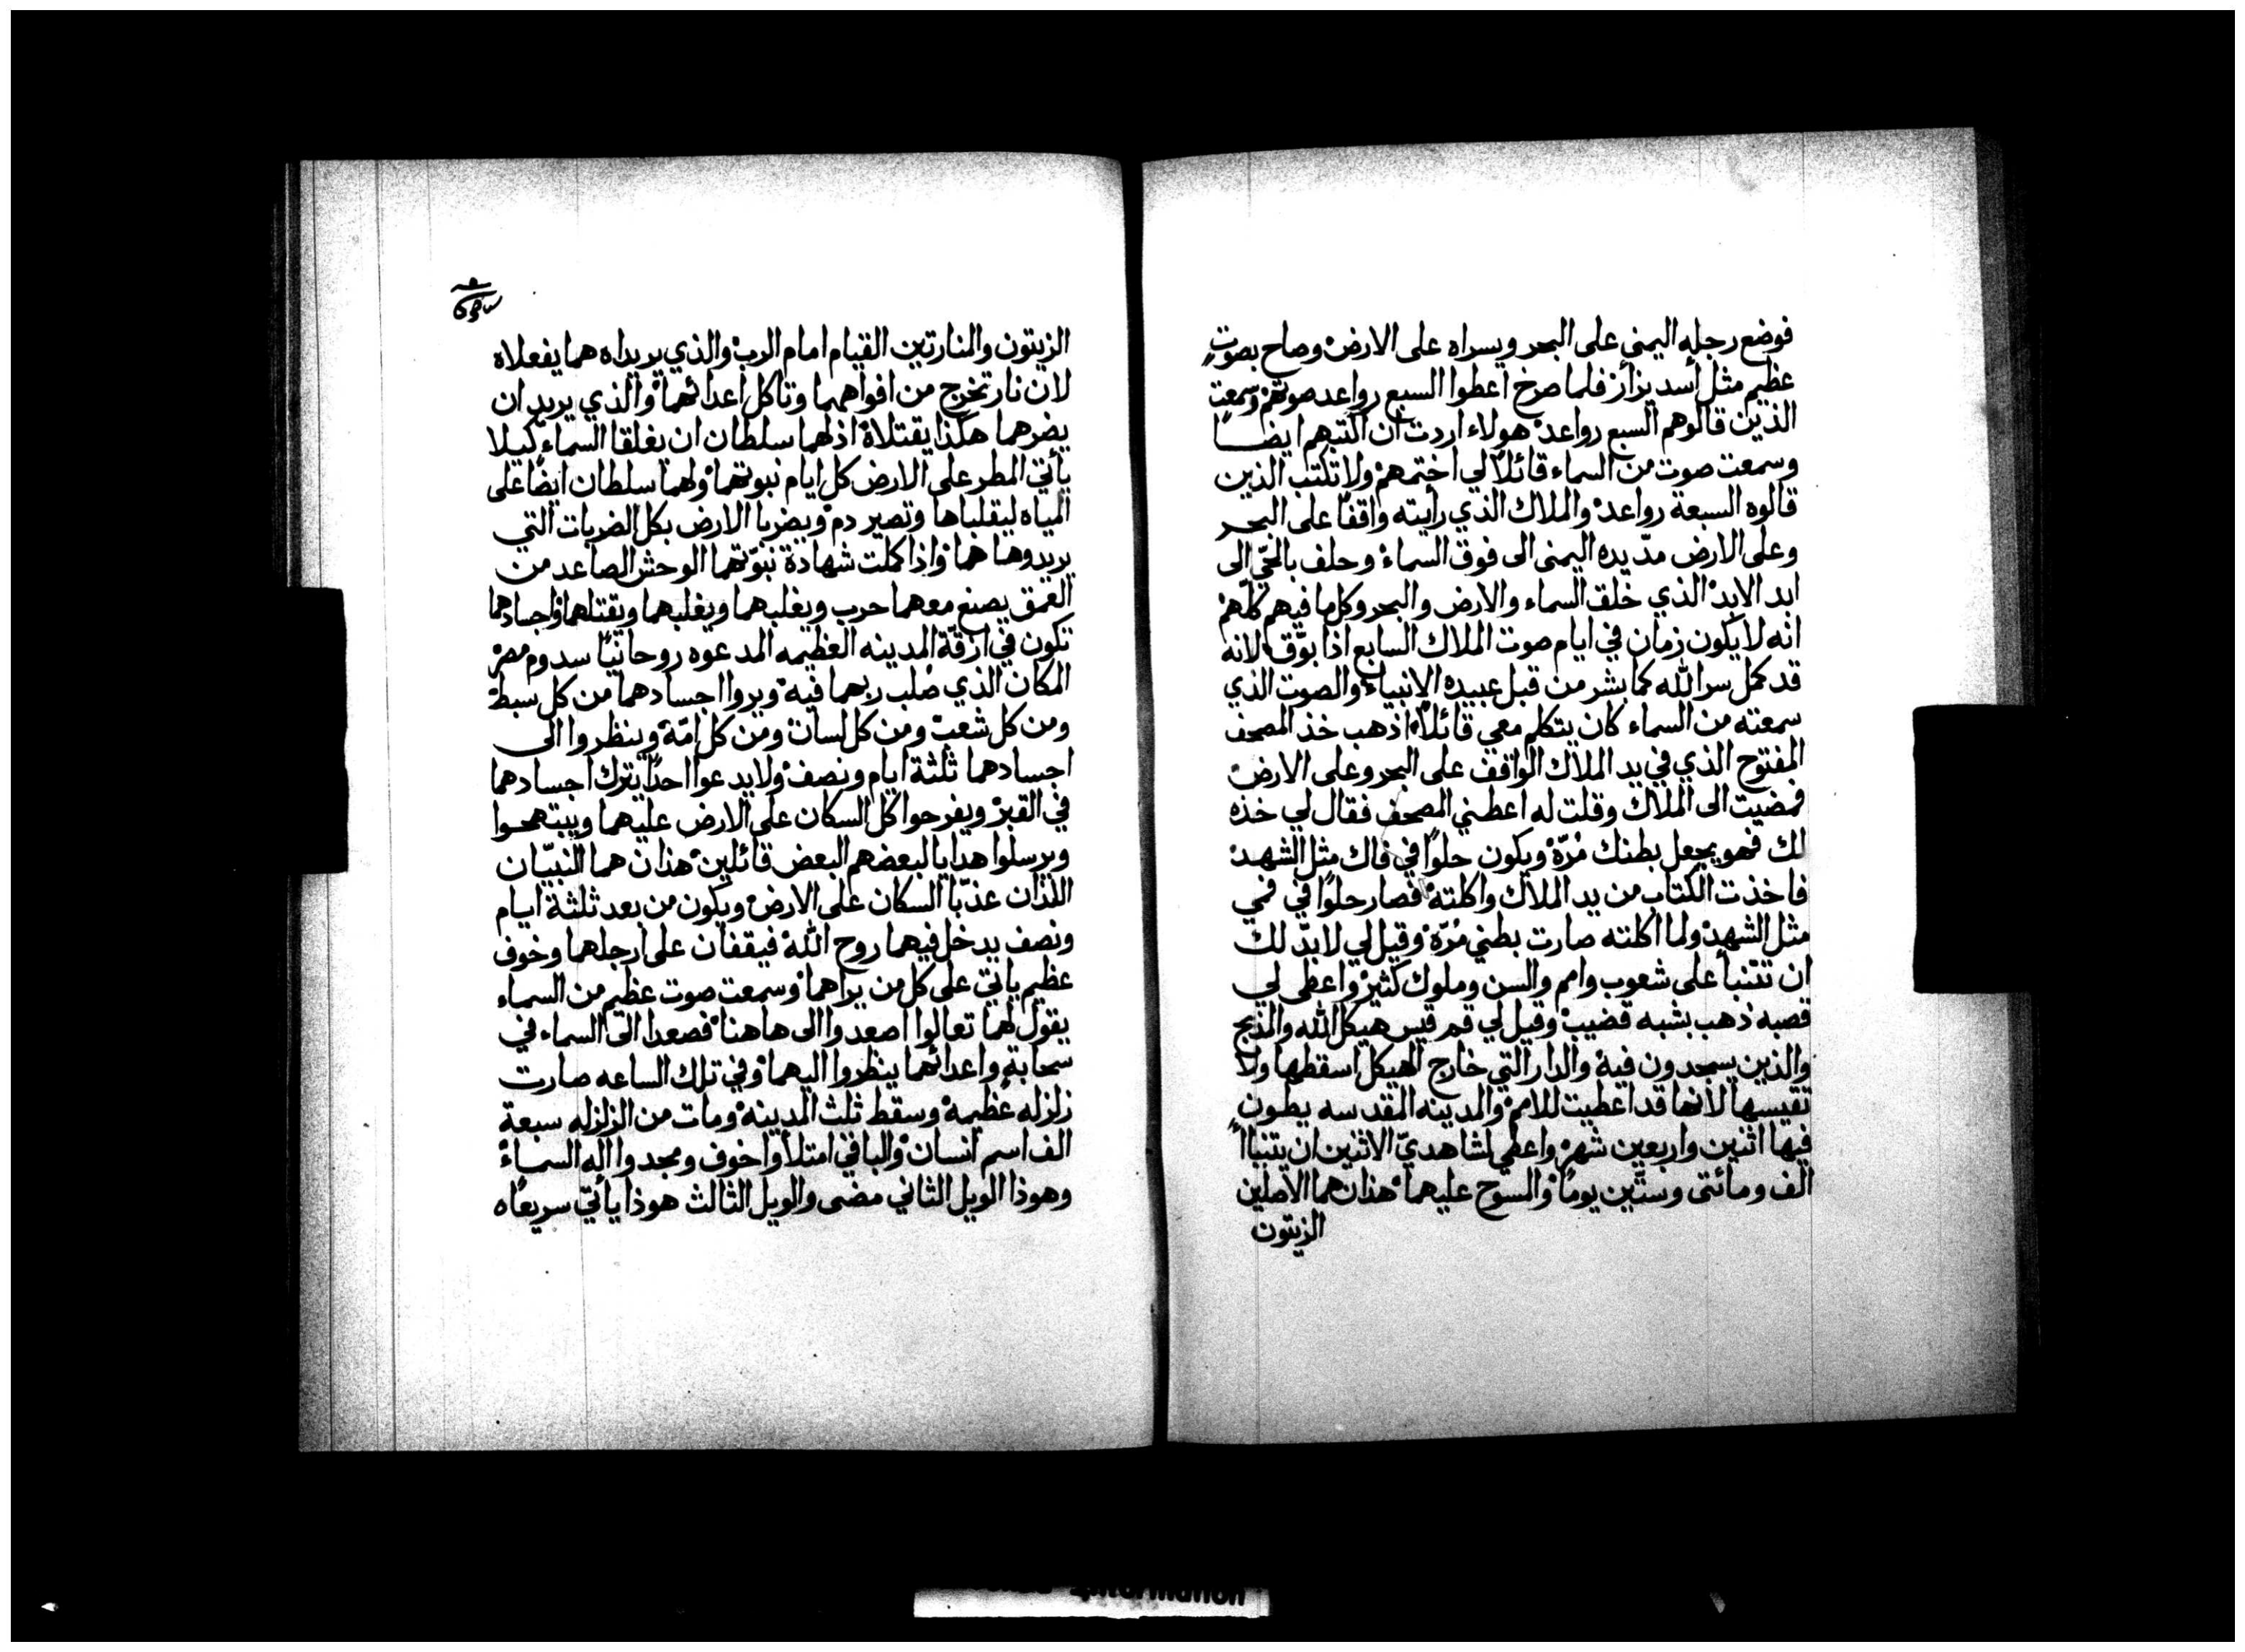 فوضع رجله اليمنى على البحر ويسراه على الارض وصاح بصوتٍ
عظيم مثل أسد يزأر فلما صرخ اعطوا السبع رواعد صوتهم وسمعت
الذين قالوهم السبع رواعد هولاء اردت ان اكتبهم ايضا
وسمعت صوت من السماء قائلا لي اختمهم ولا تكتب الذين
قالوه السبعة رواعد والملاك الذي رأيته واقفا على البحر
وعلى الارض مدّ يده اليمنى الى فوق السماء وحلف بالحيّ الى
ابد الابد الذي خلق السماء والارض والبحر وكل ما فيهم كلّهم
انه لا يكون زمان في ايام صوت الملاك السابع اذا بوّق لانه
قد كمل سر الله كما بشر من قبل عبيده الانبياء والصوت الذي
سمعته من السماء كان يتكلم معي قائلاً اذهب خذ المصحف
المفتوح الذي في يد الملاك الواقف على البحر وعلى الارض
فمضيت الى الملاك وقلت له اعطني المصحف فقال لي خذه
لك فهو يجعل بطنك مُرّة ويكون حلوًا في فاك مثل الشهد
فاخذت الكتاب من يد الملاك واكلته فصار حلوًا في فمي
مثل الشهد ولما اكلته صارت بطني مُرّة وقيل لي لابدّ لك
ان تتنبأ على شعوب وامم والسن وملوك كثير واعطى لي
قصبه ذهب بشبه قضيب وقيل لي قم قيس هيكل الله والمذبح
والذين يسجدون فيه والدار التي خارج الهيكل اسقطها ولا
تقيسها لانها قد اعطيت للامم والمدينه المقدسه يطون
فيها اثنين واربعين شهر واعطي لشاهديّ الاثنين ان يتنبأا
الف ومائتى وستّين يوما والسوح عليهما هذان هما الاصلين
الزيتون
الزيتون والمنارتين القيام امام الرب والذي يريداه هما يفعلاه
لان نار تخرج من افواههما وتاكل اعدائهما والذي يريد ان
يضرهما هكذا يقتلاه اذ لهما سلطان ان يغلقا السماء كيلا
يأتي المطر على الارض كل ايام نبوتهما ولهما سلطان ايضًا على
المياه ليقلباها وتصير دم ويضربا الارض بكل الضربات التي
يريدوها هما واذا كملت شهادة نبوّتهما الوحش الصاعد من
العمق يصنع معهما حرب ويغلبهما ويغلبهما ويقتلهما واجسادهما
تكون في ازقّة المدينه العظيمه المدعوه روحانيًا سدوم مصر
المكان الذي صُلب ربهما فيه ويروا اجسادهما من كل سبط
ومن كل شعب ومن كل لسان ومن كل امّة وينظروا الى
اجسادهما ثلثة ايام ونصف ولا يدعوا احدًا يترك اجسادهما
في القبر ويفرحوا كل السكان على الارض عليهما ويبتهجوا
ويرسلوا هدايا لبعضهم البعض قائلين هذان هما النبيّان
اللذان عذّبا السكان على الارض ويكون من بعد ثلثة ايام
ونصف يدخل فيهما روح الله فيقفان على ارجلهما وخوف
عظيم ياتي على كل من يراهما وسمعت صوت عظيم من السماء
يقول لهما تعالوا اصعدوا الى هاهنا فصعدا الى السماء في
سحابة واعدائهما ينظروا اليهما وفي تلك الساعه صارت
زلزله عظيمه وسقط ثلث المدينه ومات من الزلزله سبعة
الف اسم انسان والباقي امتلأوا خوف ومجدوا اله السماء
وهوذا الويل الثاني مضى والويل الثالث هوذا يأتي سريعاه